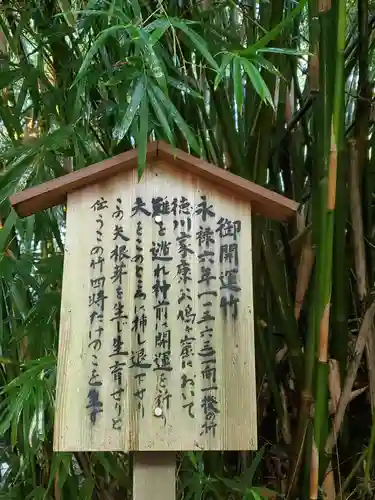 御開運竹
永禄六年(一五六三)一揆の
徳川家康公鳩ヶ窟において
難を逃れ神前に開運を祈り
矢をこのところに挿し退下す
この矢根芽を生じ生育せりと
伝うこの竹四時たけのこを